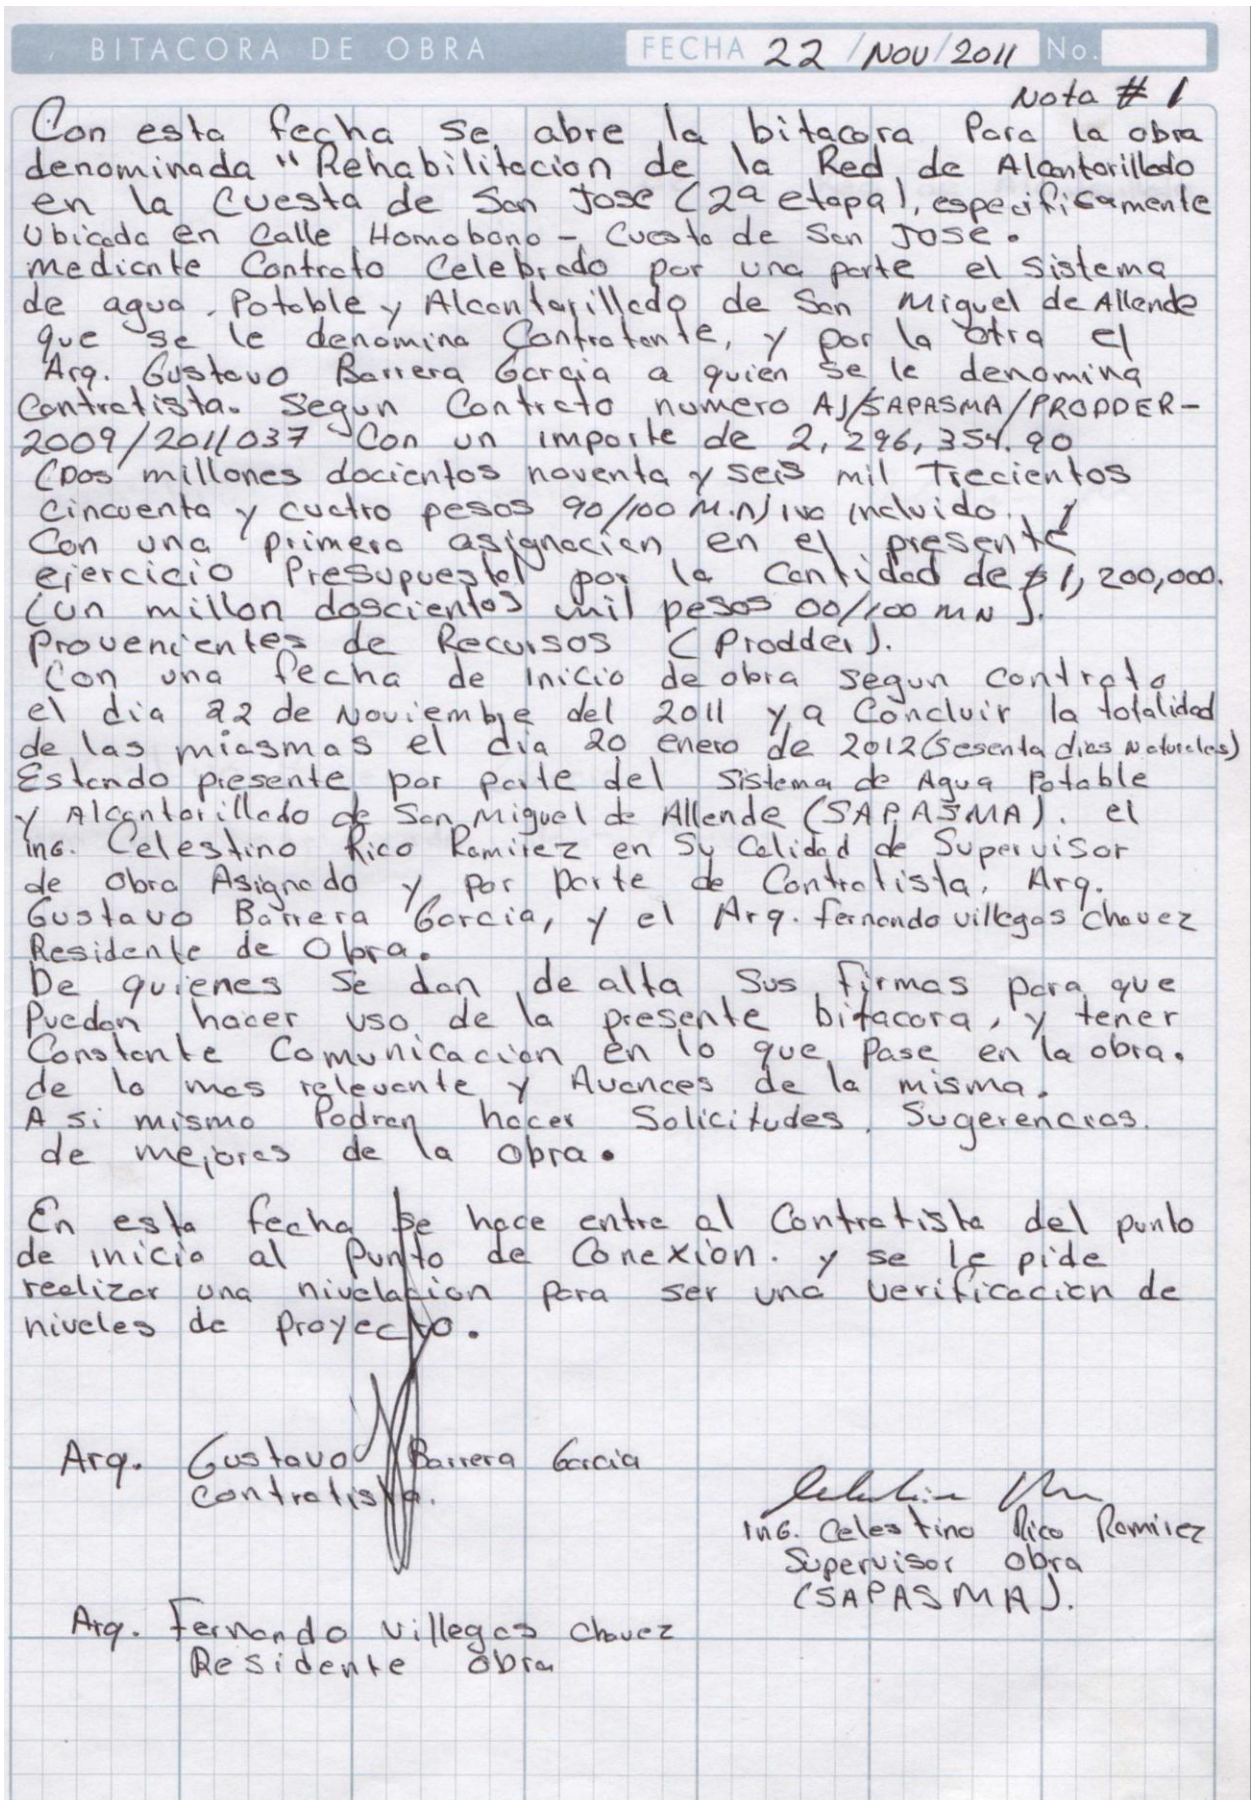 BITACORA DE OBRA FECHA 22 / NOV / 2011 No.
Nota # 1
Con esta fecha se abre la bitacora Para la obra
denominada "Rehabilitacion de la Red de Alcantarillado
en la Cuesta de San Jose (2ª etapa), especificamente
Ubicada en Calle Homobono - Cuesta de San Jose.
mediante Contrato Celebrado por una parte el Sistema
de agua Potable y Alcantarillado de San Miguel de Allende
que se le denomina Contratante, y por la otra el
Arq. Gustavo Barrera Garcia a quien se le denomina
Contratista. Segun Contrato numero AJ/SAPASMA/PRODDER-
2009/2011/037 Con un importe de 2,296,354.90
(Dos millones docientos noventa y seis mil Trecientos
Cincuenta y cuatro pesos 90/100 M.N) iva incluido.
Con una primera asignacion en el presente
ejercicio Presupuestal por la Cantidad de $1,200,000.
(un millon doscientos mil pesos 00/100 MN).
Provenientes de Recursos (Prodder).
Con una fecha de inicio de obra segun contrato
el dia 22 de Noviembre del 2011 y a Concluir la totalidad
de las miasmas el dia 20 enero de 2012 (Sesenta dias Naturales)
Estando presente por parte del Sistema de Agua Potable
y Alcantarillado de San Miguel de Allende (SAPASMA). el
ing. Celestino Rico Ramirez en Su Calidad de Supervisor
de Obra Asignado y por parte de Contratista, Arq.
Gustavo Barrera Garcia, y el Arq. fernando villegas chavez
Residente de Obra.
De quienes se dan de alta Sus firmas para que
Puedan hacer uso de la presente bitacora, y tener
Constante Comunicacion en lo que Pase en la obra.
de lo mas relevante y Avances de la misma.
A si mismo Podran hacer Solicitudes, Sugerencias.
de mejoras de la obra.
En esta fecha se hace entre al Contratista del punto
de inicio al Punto de Conexion. y se le pide
realizar una nivelacion para ser una verificacion de
niveles de proyecto.
Arq. Gustavo Barrera Garcia
Contratista.
ING. Celestino Rico Ramirez
Supervisor Obra
(SAPASMA).
Arq. Fernando villegas chavez
Residente Obra